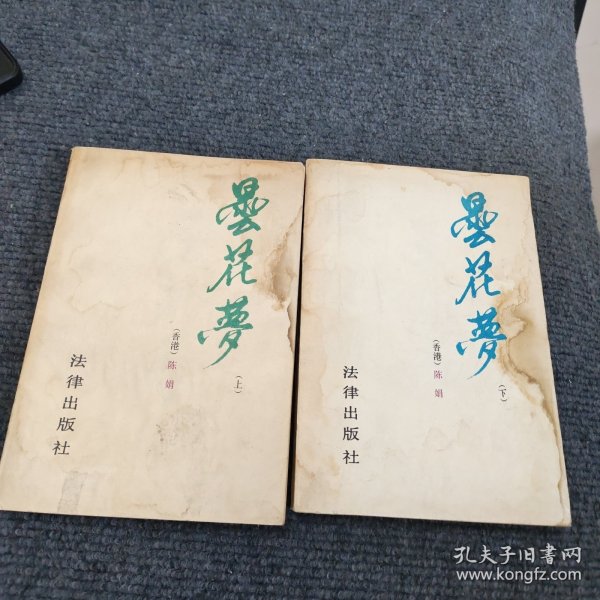 曇花夢
(上)
(香港) 陈娟
法律出版社
曇花夢
(下)
(香港) 陈娟
法律出版社
孔夫子旧书网
www.kongfz.com